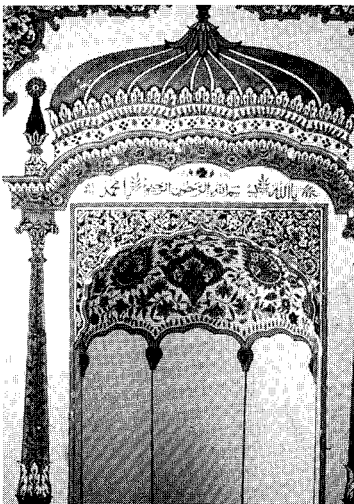 يا الله بسم الله الرحمن الرحيم يا محمد